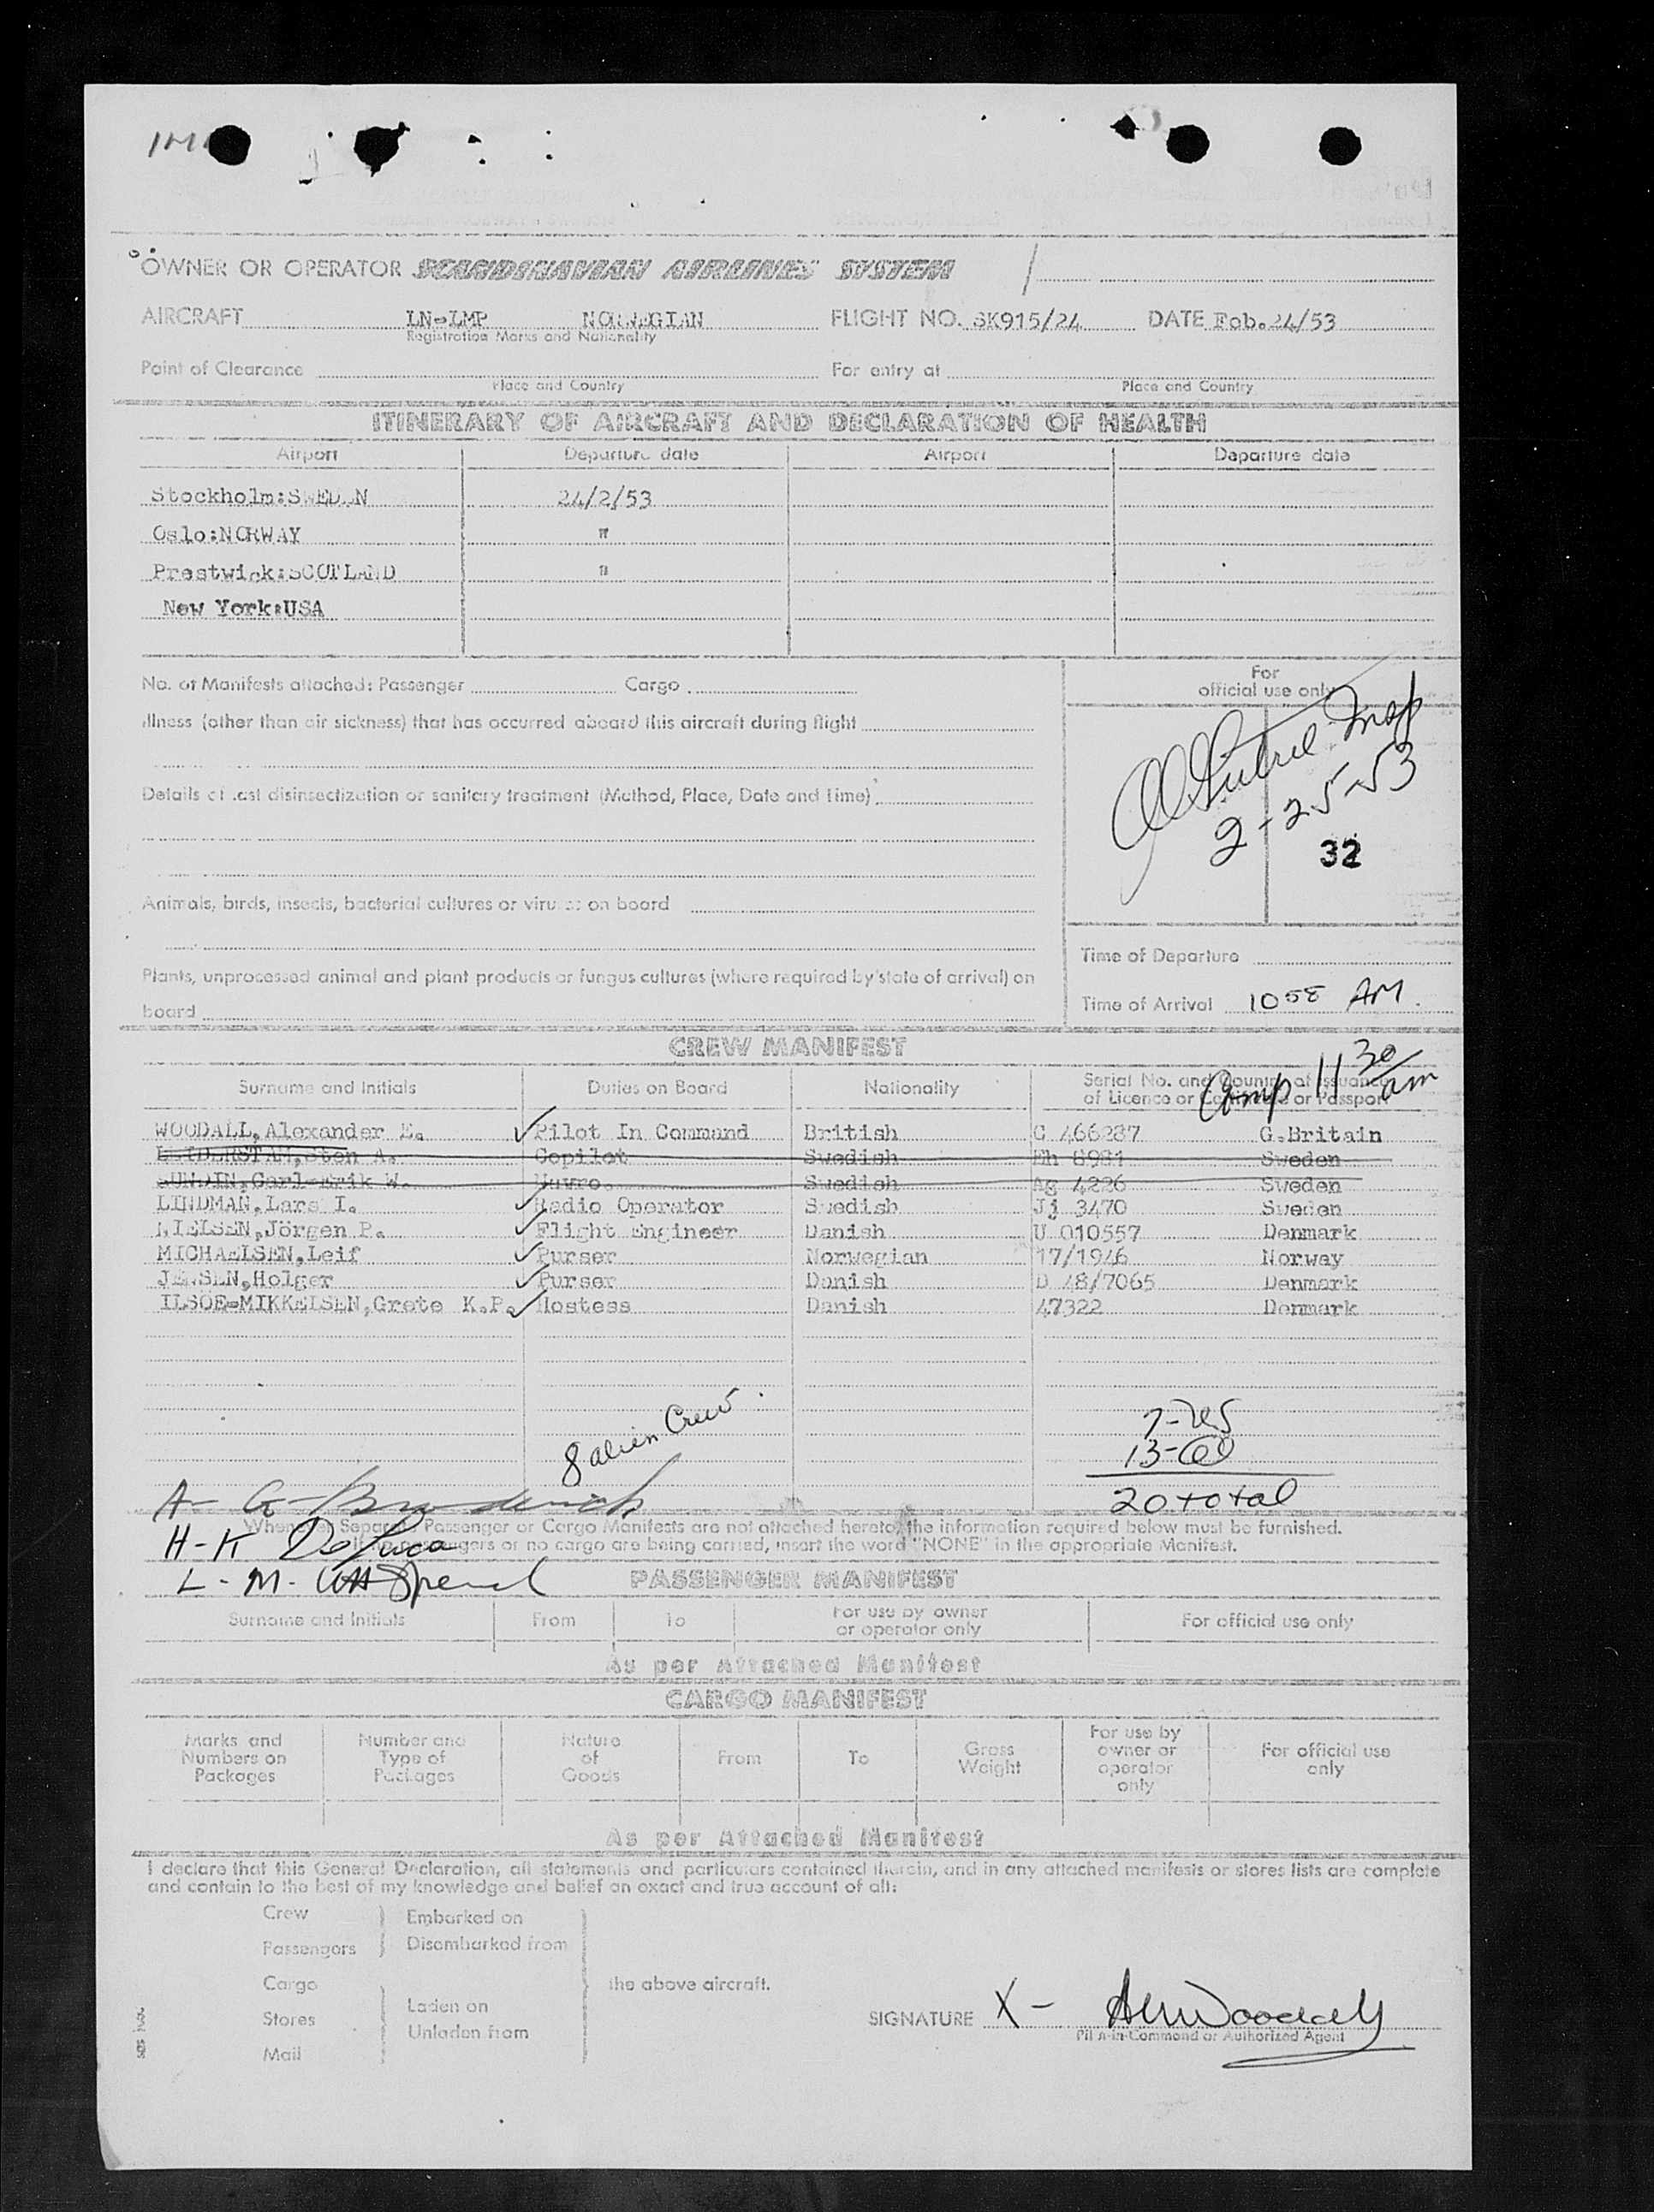 OWNER OR OPERATOR SCANDINAVIAN AIRLINES SYSTEM
AIRCRAFT LN-LMP NORWEGIAN FLIGHT NO. SK915/24 DATE Feb.24/53
Registration Marks and Nationality
Point of Clearance For entry at
Place and Country Place and Country
ITINERARY OF AIRCRAFT AND DECLARATION OF HEALTH
Airport Departure date Airport Departure date
Stockholm:SWEDEN 24/2/53
Oslo:NORWAY "
Prestwick:SCOTLAND "
New York:USA
For
official use only
No. of Manifests attached: Passenger Cargo
Illness (other than air sickness) that has occurred aboard this aircraft during flight
Insp
2-25-53
Details of last disinsectization or sanitary treatment (Method, Place, Date and Time)
32
Animals, birds, insects, bacterial cultures or viruses on board
Time of Departure
Plants, unprocessed animal and plant products or fungus cultures (where required by state of arrival) on
board
Time of Arrival 1058 AM.
CREW MANIFEST
Comp 11 30/am
Surname and Initials Duties on Board Nationality Serial No. and Country of Issuance
of Licence or Certificate or Passport
WOODALL,Alexander E. ✓ Pilot In Command British C 466287 G.Britain
Sten A. Copilot Swedish Eh 8981 Sweden
SUNDIN,Carl-Erik W. Navro. Swedish Ag 4226 Sweden
LINDMAN,Lars I. ✓ Radio Operator Swedish Jj 3470 Sweden
NIELSEN,Jörgen P. ✓ Flight Engineer Danish U 010557 Denmark
MICHAELSEN,Leif ✓ Purser Norwegian 17/1946 Norway
JENSEN,Holger ✓ Purser Danish D 48/7065 Denmark
ILSOE-MIKKELSEN,Grete K.P. ✓ Hostess Danish 47322 Denmark
8 alien Crew
20 total
When Separate Passenger or Cargo Manifests are not attached hereto, the information required below must be furnished.
If no passengers or no cargo are being carried, insert the word "NONE" in the appropriate Manifest.
PASSENGER MANIFEST
Surname and Initials From To For use by owner
or operator only For official use only
As per Attached Manifest
CARGO MANIFEST
Marks and
Numbers on
Packages Number and
Type of
Packages Nature
of
Goods From To Gross
Weight For use by
owner or
operator
only For official use
only
As per Attached Manifest
I declare that this General Declaration, all statements and particulars contained therein, and in any attached manifests or stores lists are complete
and contain to the best of my knowledge and belief an exact and true account of all:
Crew Embarked on
Passengers Disembarked from
Cargo the above aircraft.
Stores Laden on
Unladen from
Mail
SIGNATURE X - Woodall
Pilot-in-Command or Authorized Agent